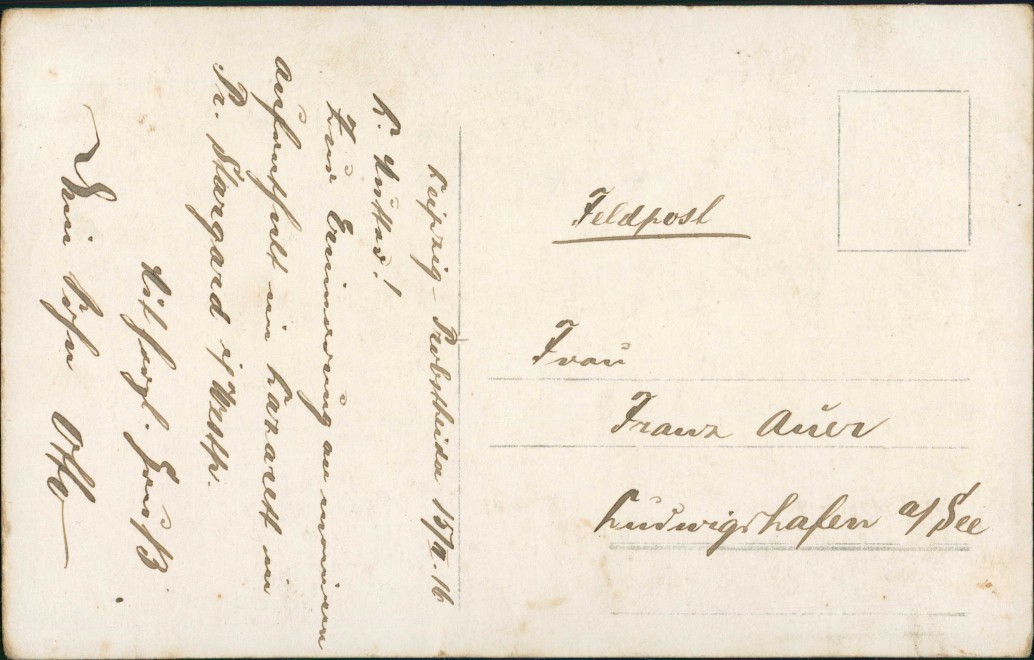 Leipzig-Probstheida 15/II.16
L. Mutter!
Zur Erinnerung an meinen
Aufenthalt im Lazarett in
Pr. Stargard i/Westpr.
Mit herzl. Gruß
Dein Sohn Otto
Feldpost
Frau
Franz Auer
Ludwigshafen a/See